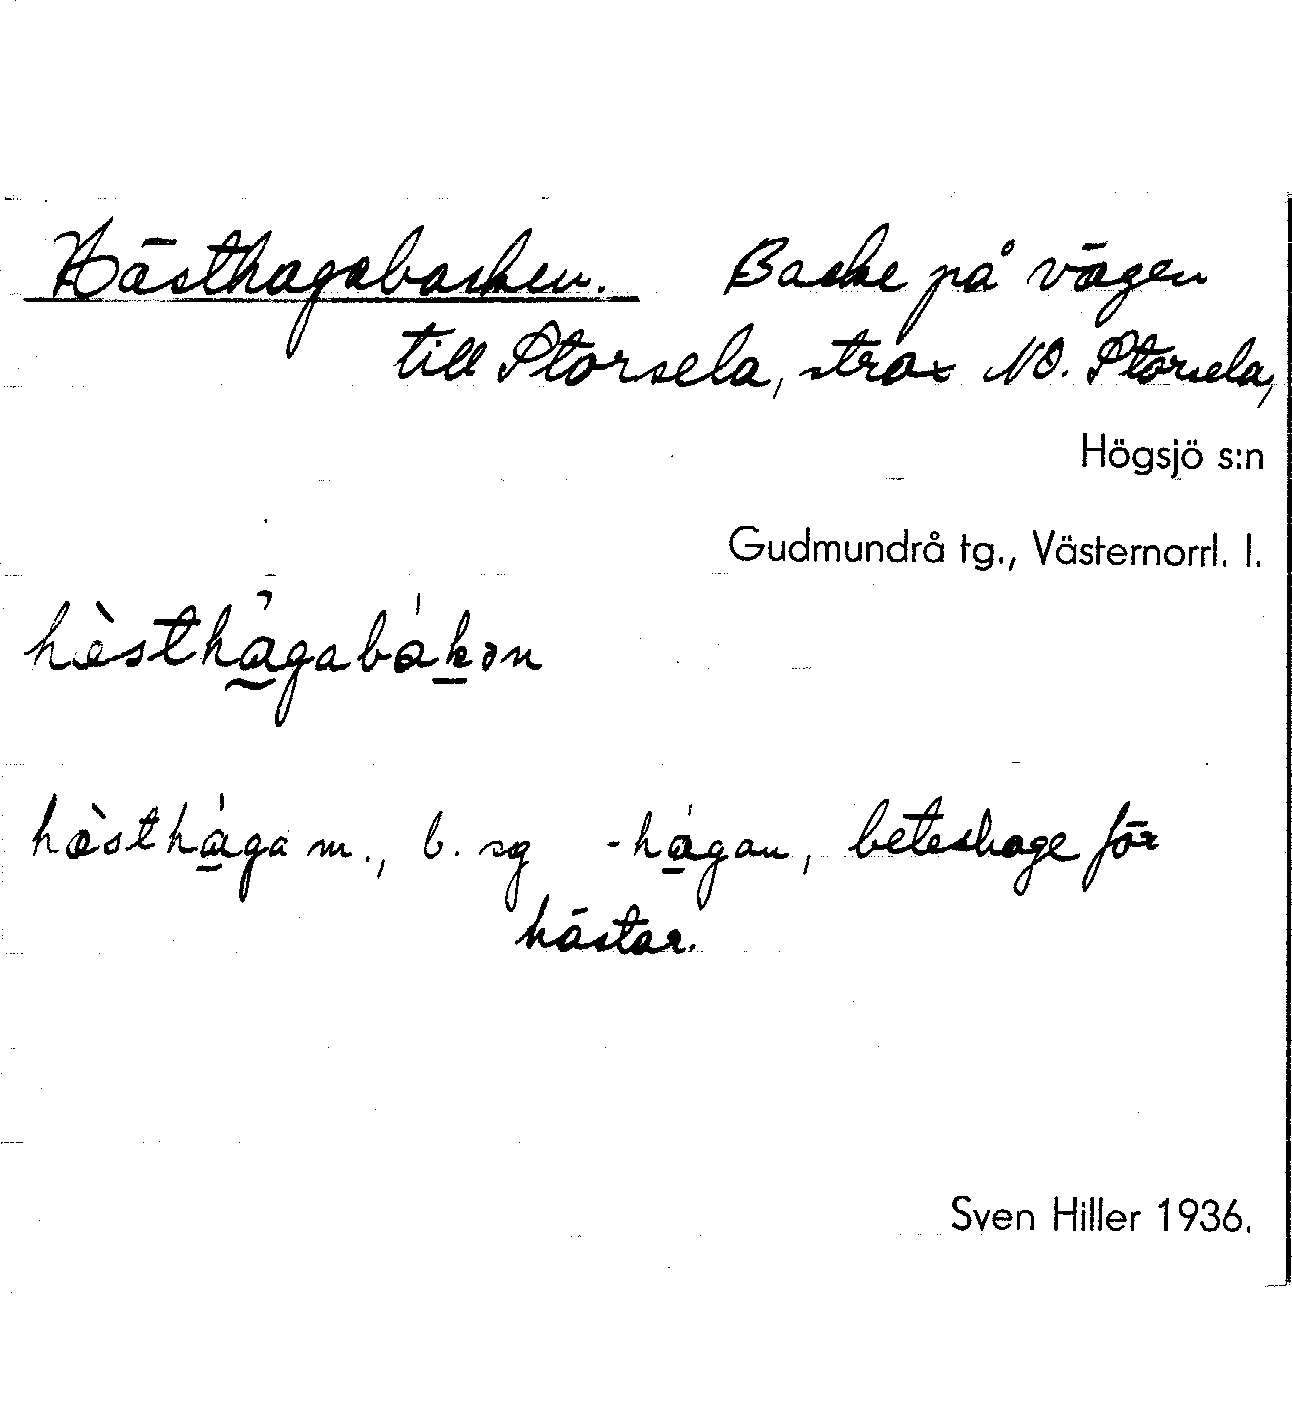 Hästhagabacken. Backe på vägen
till Storsela, strax NO. Storsela,
Högsjö s:n
Gudmundrå tg., Västernorrl. l.
hèsthágabákən
hèsthága m., b. sg -hágan, beteshage för
hästar.
Sven Hiller 1936.